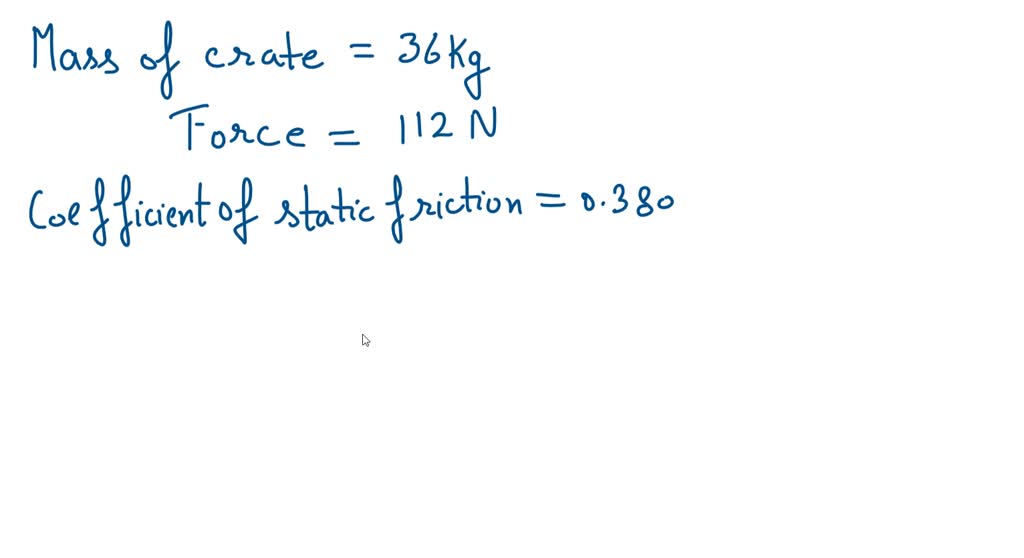 Mass of crate = 36Kg
Force = 112 N
Coefficient of static friction = 0.380